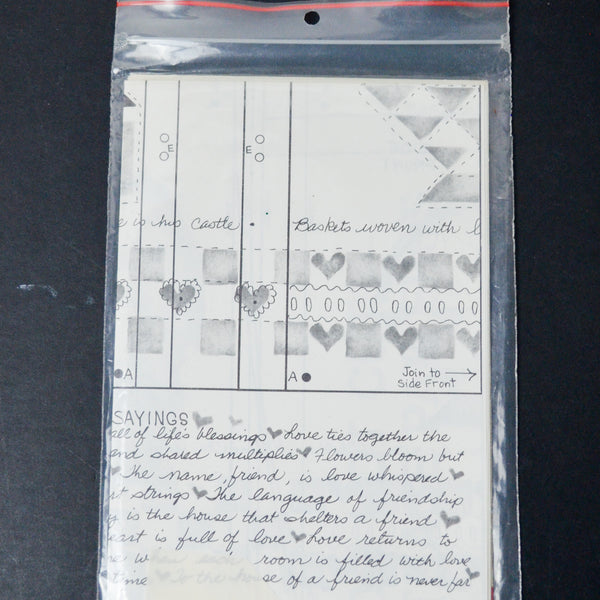 E E
e is his Castle • Baskets woven with l
A A Join to
side Front
SAYINGS
all of life's blessings Love ties together the
and shared multiplies Flowers bloom but
The name, friend, is love whispered
rt strings The language of friendship
is the house that shelters a friend
eart is full of love Love returns to
room is filled with love
time To the house of a friend is never far